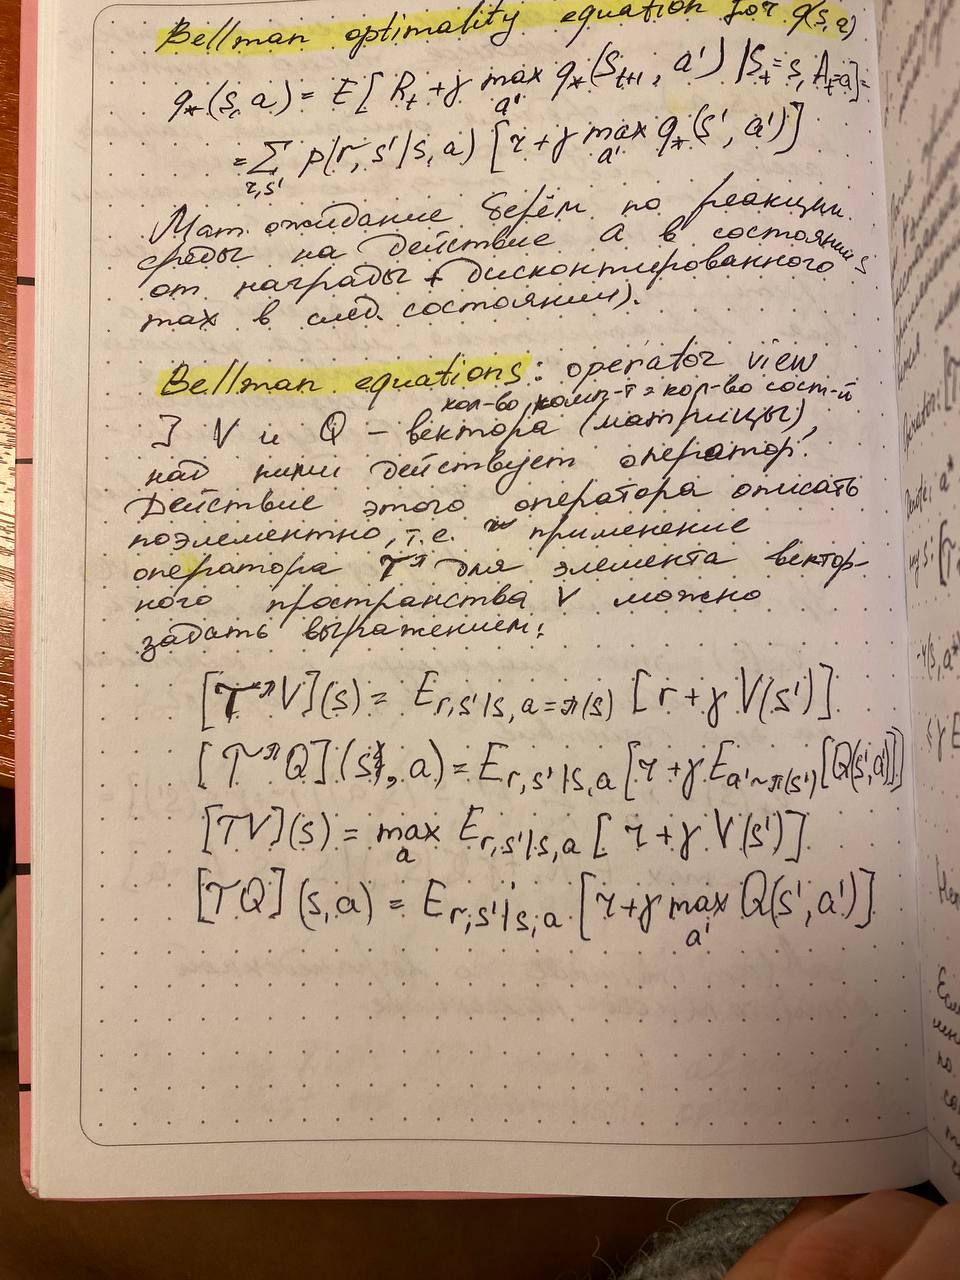 Bellman optimality equation for q(s,a)
q*(s,a) = E[ Rt + γ max a' q*(St+1, a') | St = s, At = a] =
= Σ r,s' p(r, s' | s, a) [r + γ max a' q*(s', a')]
Мат. ожидание берём по реакции
среды на действие a в состоянии s
от награды + дисконтированного
max в след. состоянии).
Bellman equations: operator view
кол-во комп-т = кол-во сост-й
∃ V и Q - вектора (матрицы),
над ними действует оператор.
Действие этого оператора описать
поэлементно, т.е. применение
оператора T^π для элемента вектор-
ного пространства V можно
задать выражением:
[T^π V](s) = E r,s'|s,a=π(s) [r + γ V(s')]
[T^π Q](s, a) = E r,s'|s,a [r + γ E a'~π(s') [Q(s',a')]]
[TV](s) = max a E r,s'|s,a [r + γ V(s')]
[TQ](s,a) = E r,s'|s,a [r + γ max a' Q(s',a')]